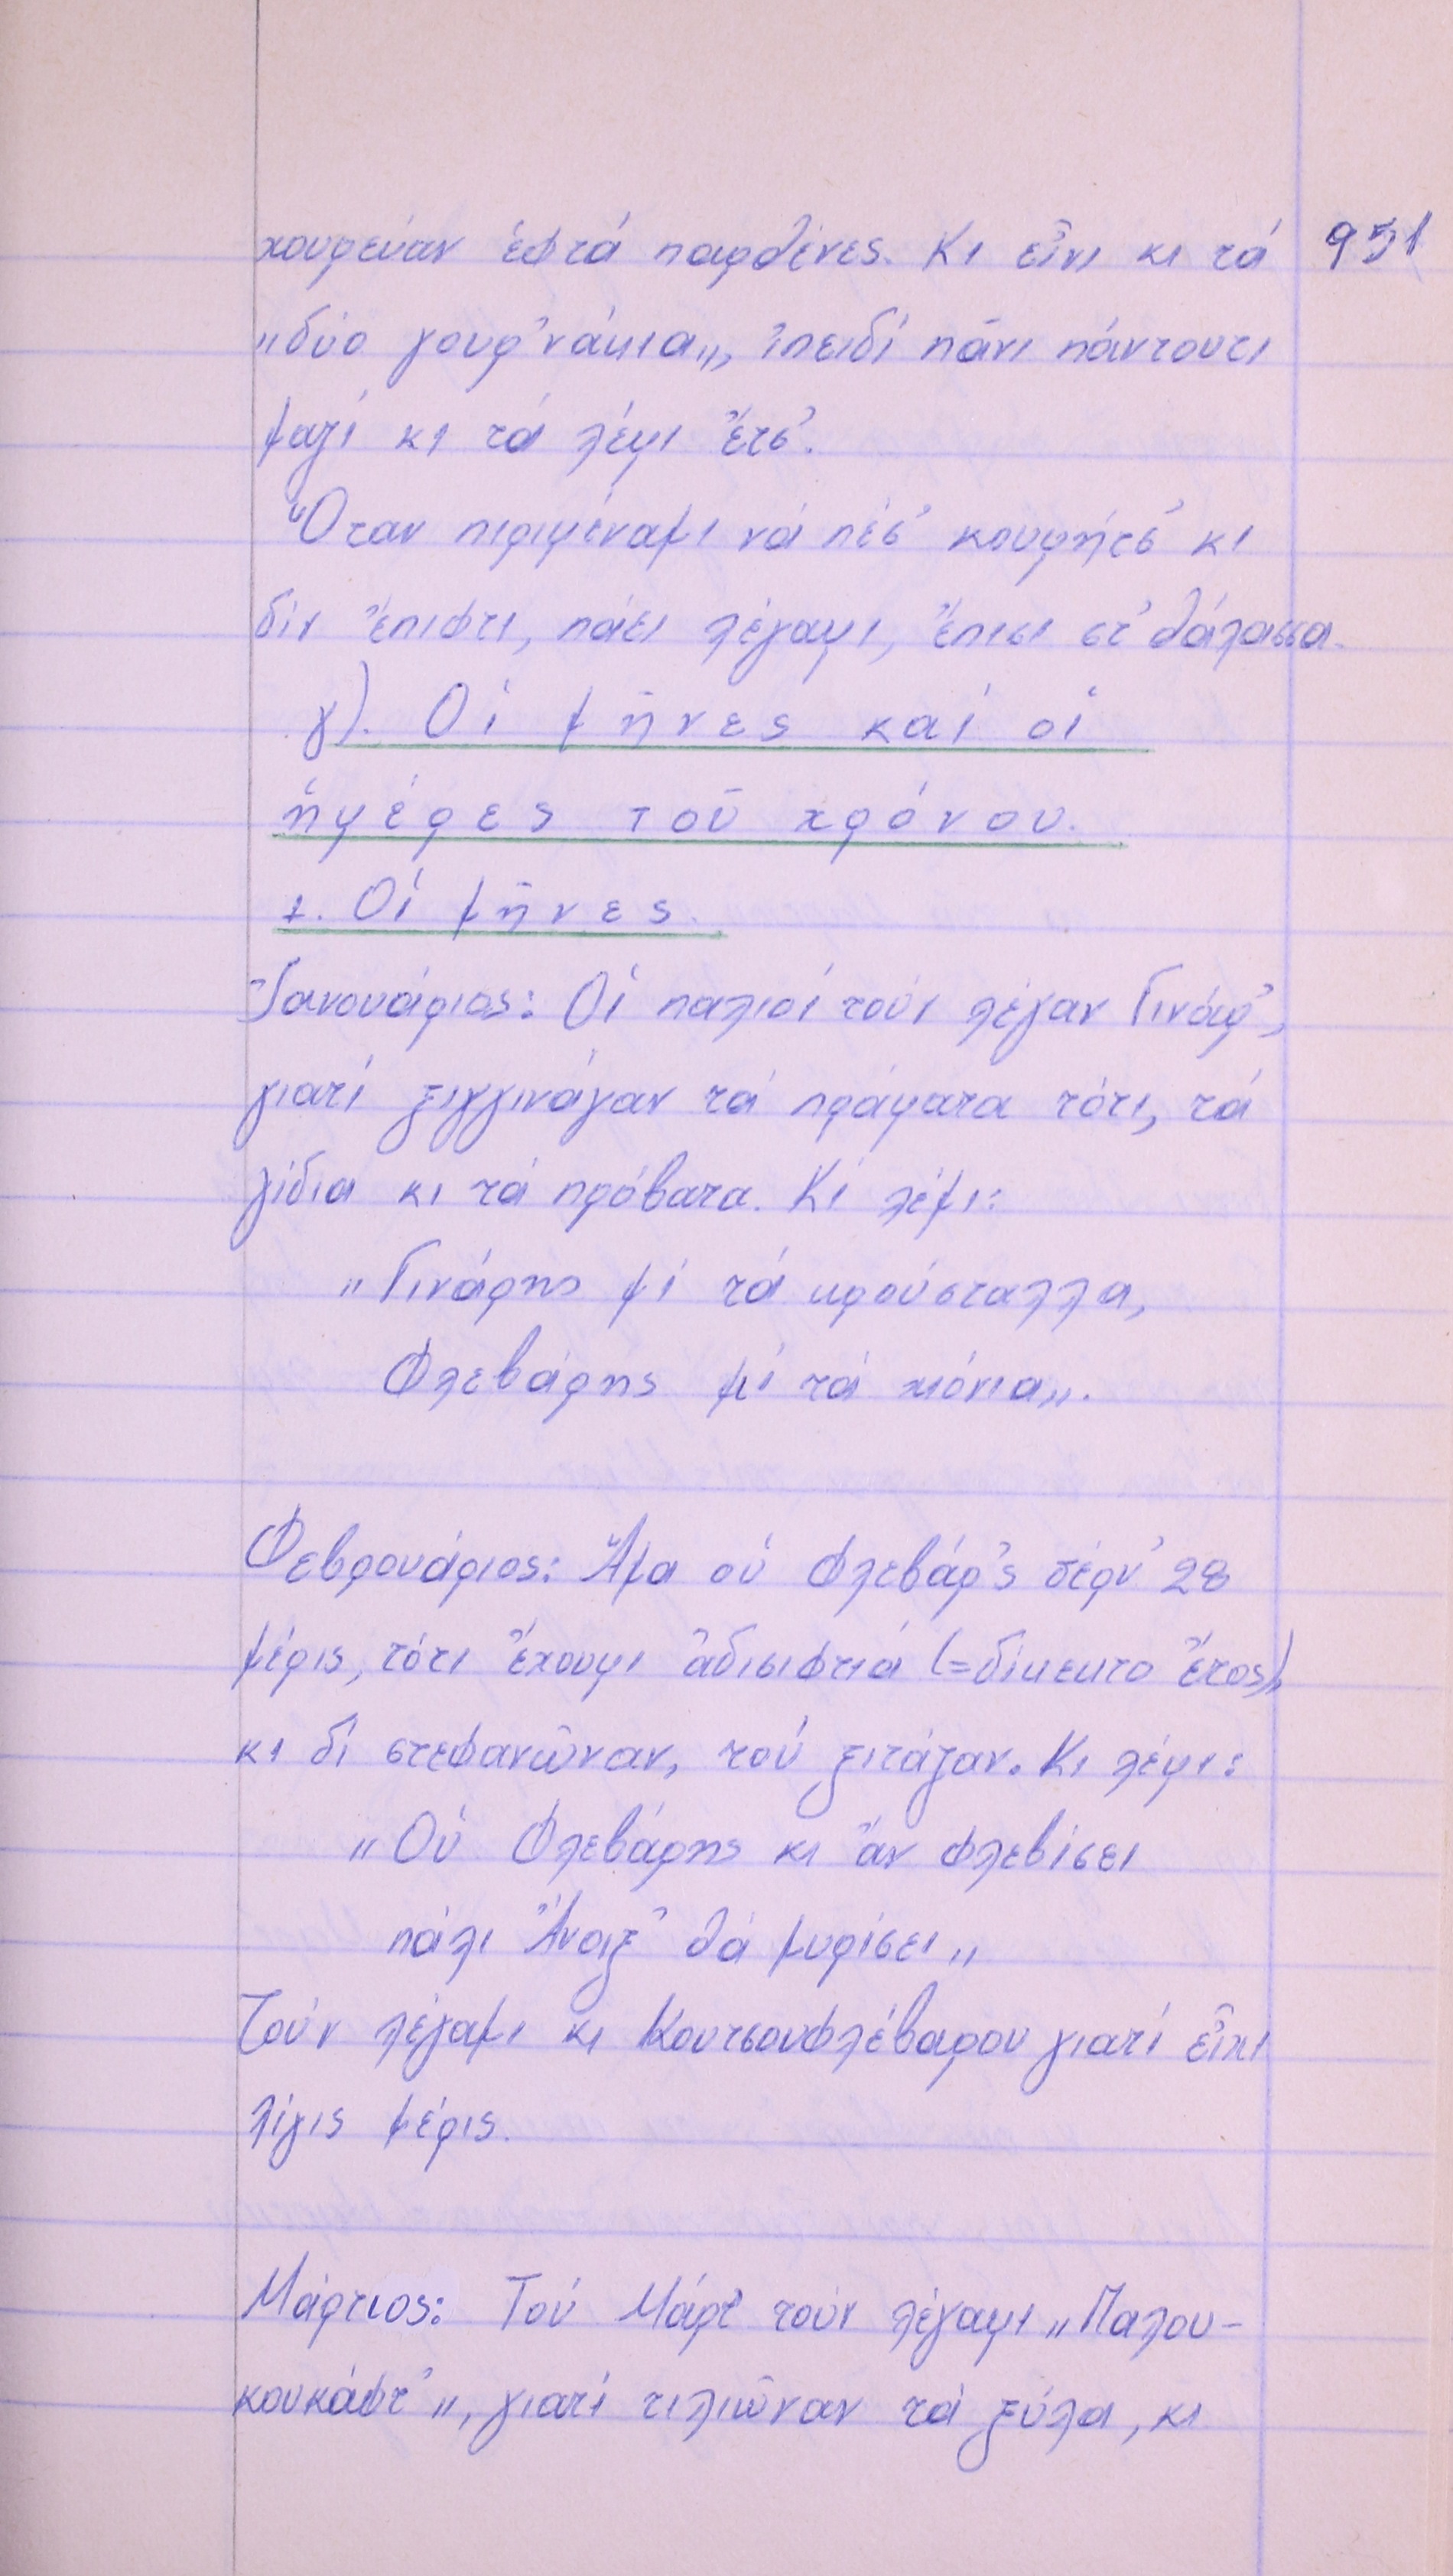 χουρεύαν ἑφτά παρθένες. Κι εἶνι κι τά 951
„δύο γουρ᾿νάκια„, ἰπειδί πᾶνι πάντουτι
μαζί κι τά λέμι ἔτσ᾿.
Ὅταν πιριμέναμι νά πέσ᾿ κουρήτσ᾿ κι
δίν ἔπιφτι, πάει λέγαμι, ἔπισι στ᾿ θάλασσα.
γ). Οἱ μῆνες καί οἱ
ἡμέρες τοῦ χρόνου.
1. Οἱ μῆνες.
Ἰανουάριος: Οἱ παλιοί τούν λέγαν Γινάρ᾿,
γιατί ξιγγινάγαν τά πράματα τότι, τά
γίδια κι τά πρόβατα. Κι λέμι:
„Γινάρης μί τά κρούσταλλα,
Φλεβάρης μί τά χιόνια„.
Φεβρουάριος: Ἅμα οὑ Φλεβάρ᾿ς πέρν᾿ 28
μέρις, τότι ἔχουμι ἀδισιφτιά (=δίσεκτο ἔτος),
κι δέ στεφανῶναν, τού ξιτάζαν. Κι λέμι:
„Οὑ Φλεβάρης κι ἄν φλεβίσει
πάλι Ἄνοιξ᾿ θά μυρίσει„
Τούν λέγαμι κι Κουτσουφλέβαρου γιατί εἶχι
λίγις μέρις.
Μάρτιος: Τού Μάρτ᾿ τούν λέγαμι „Παλου-
κουκάφτ᾿„, γιατί τιλιῶναν τά ξύλα, κι